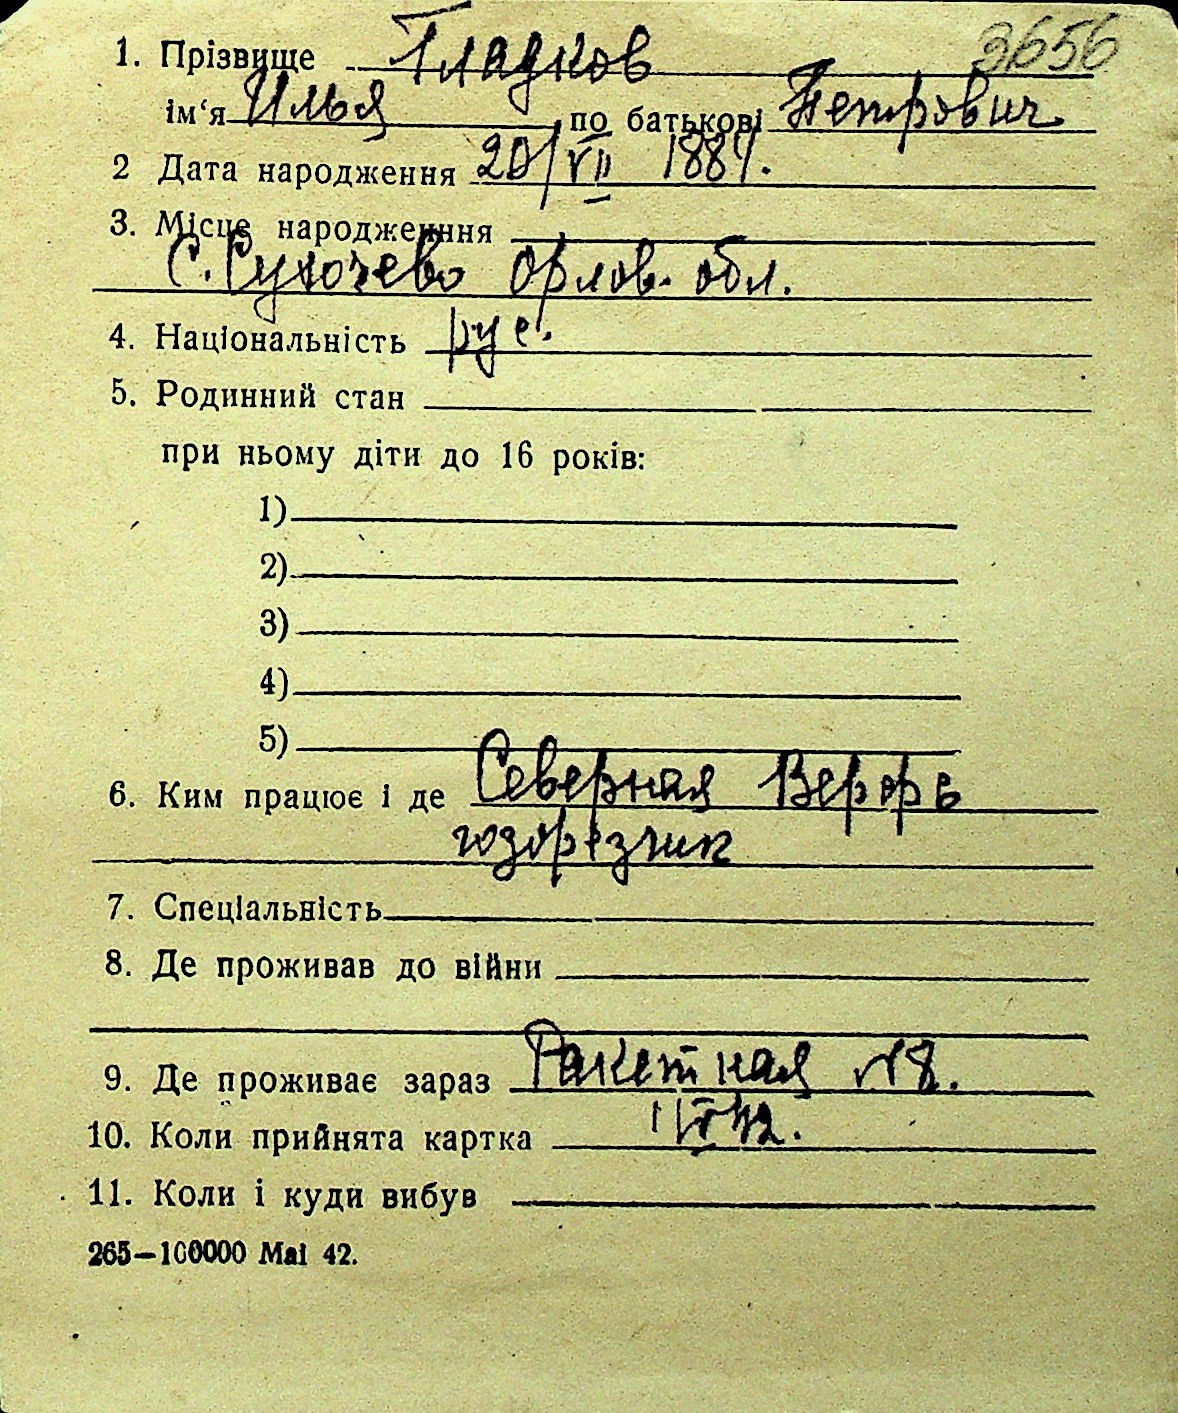 3656
1. Прізвище Гладков
ім‘я Илья по батькові Петрович
2 Дата народження 20/VII 1884.
3. Місце народження
С. Сухочево Орлов. обл.
4. Національність рус.
5. Родинний стан
при ньому діти до 16 років:
1)
2)
3)
4)
5)
6. Ким працює і де Северная
7. Спеціальність
8. Де проживав до війни
9. Де проживає зараз Ракетная №8.
10. Коли прийнята картка
11. Коли і куди вибув
265—100000 Mai 42.